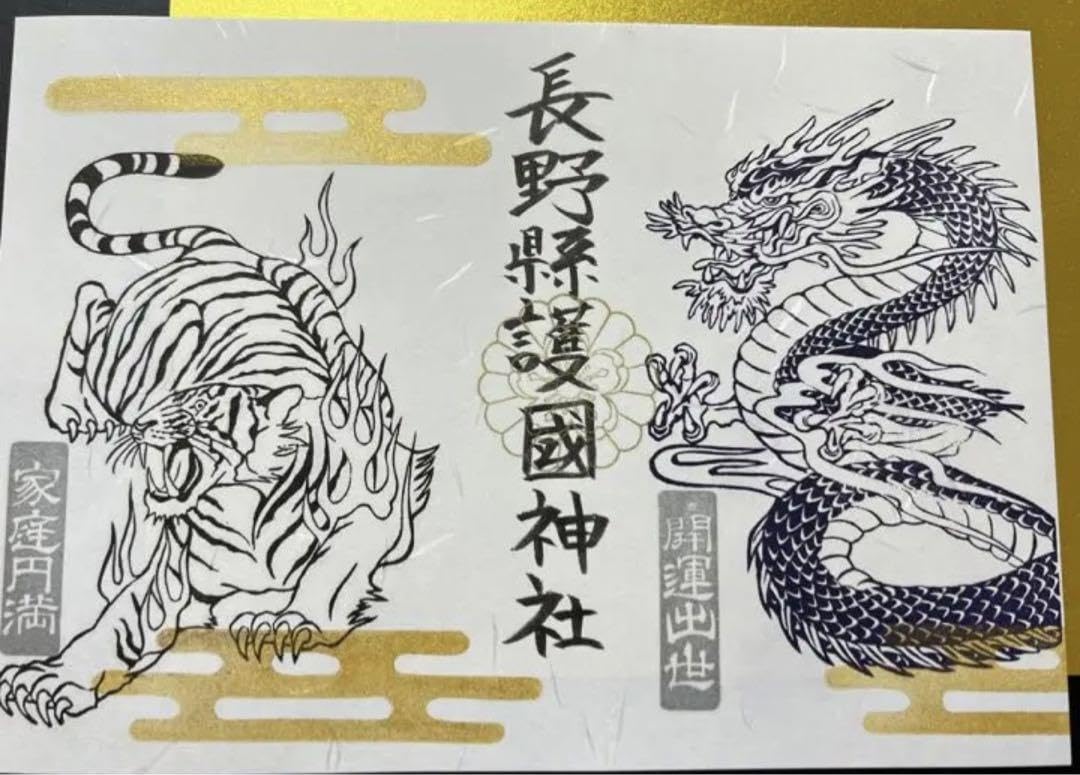 長野縣護國神社
開運出世
家庭円満